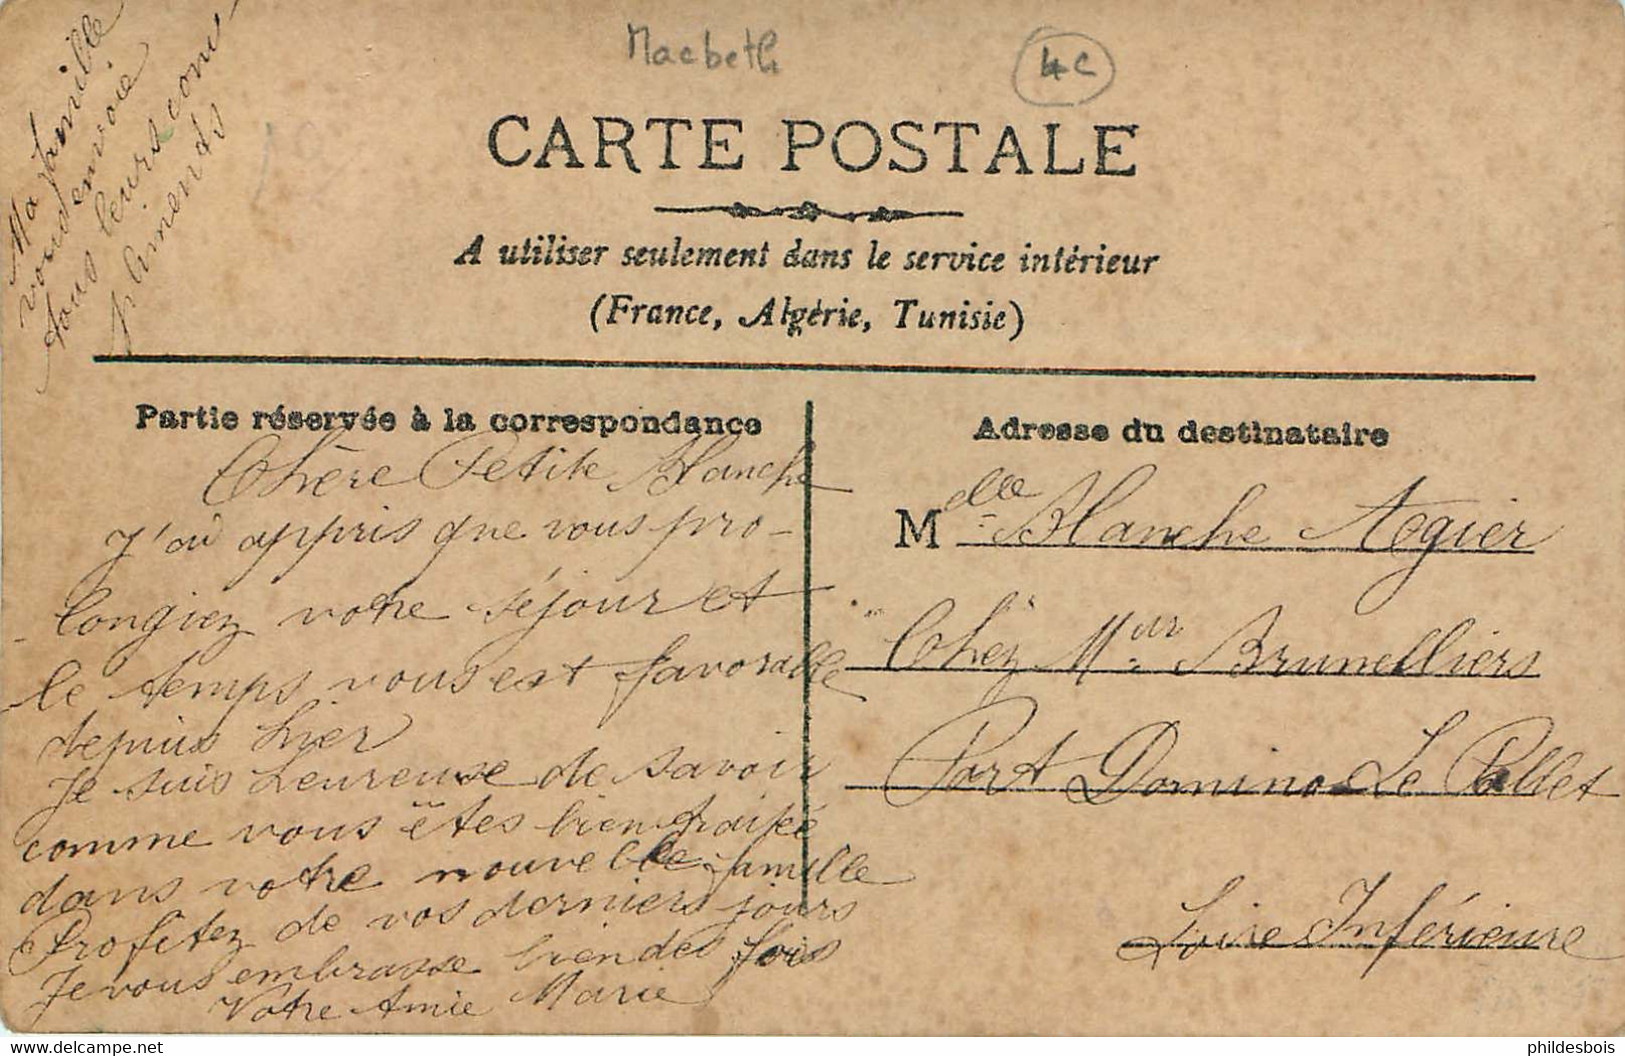 Macbeth
4c
Ma famille
vous envoie
tous leurs com
pliments
CARTE POSTALE
A utiliser seulement dans le service intérieur
(France, Algérie, Tunisie)
Partie réservée à la correspondance
Chère Petite Blanche
J'ai appris que vous pro-
longiez votre séjour et
le temps vous est favorable
depuis hier
Je suis heureuse de savoir
comme vous êtes bien traitée
dans votre nouvelle famille
Profitez de vos derniers jours
Je vous embrasse bien des fois
Votre Amie Marie
Adresse du destinataire
Mdelle Blanche Aegier
Chez Mr Brunelliers
Port Domino Le Pallet
Loire Inférieure
delcampe.net
phildesbois